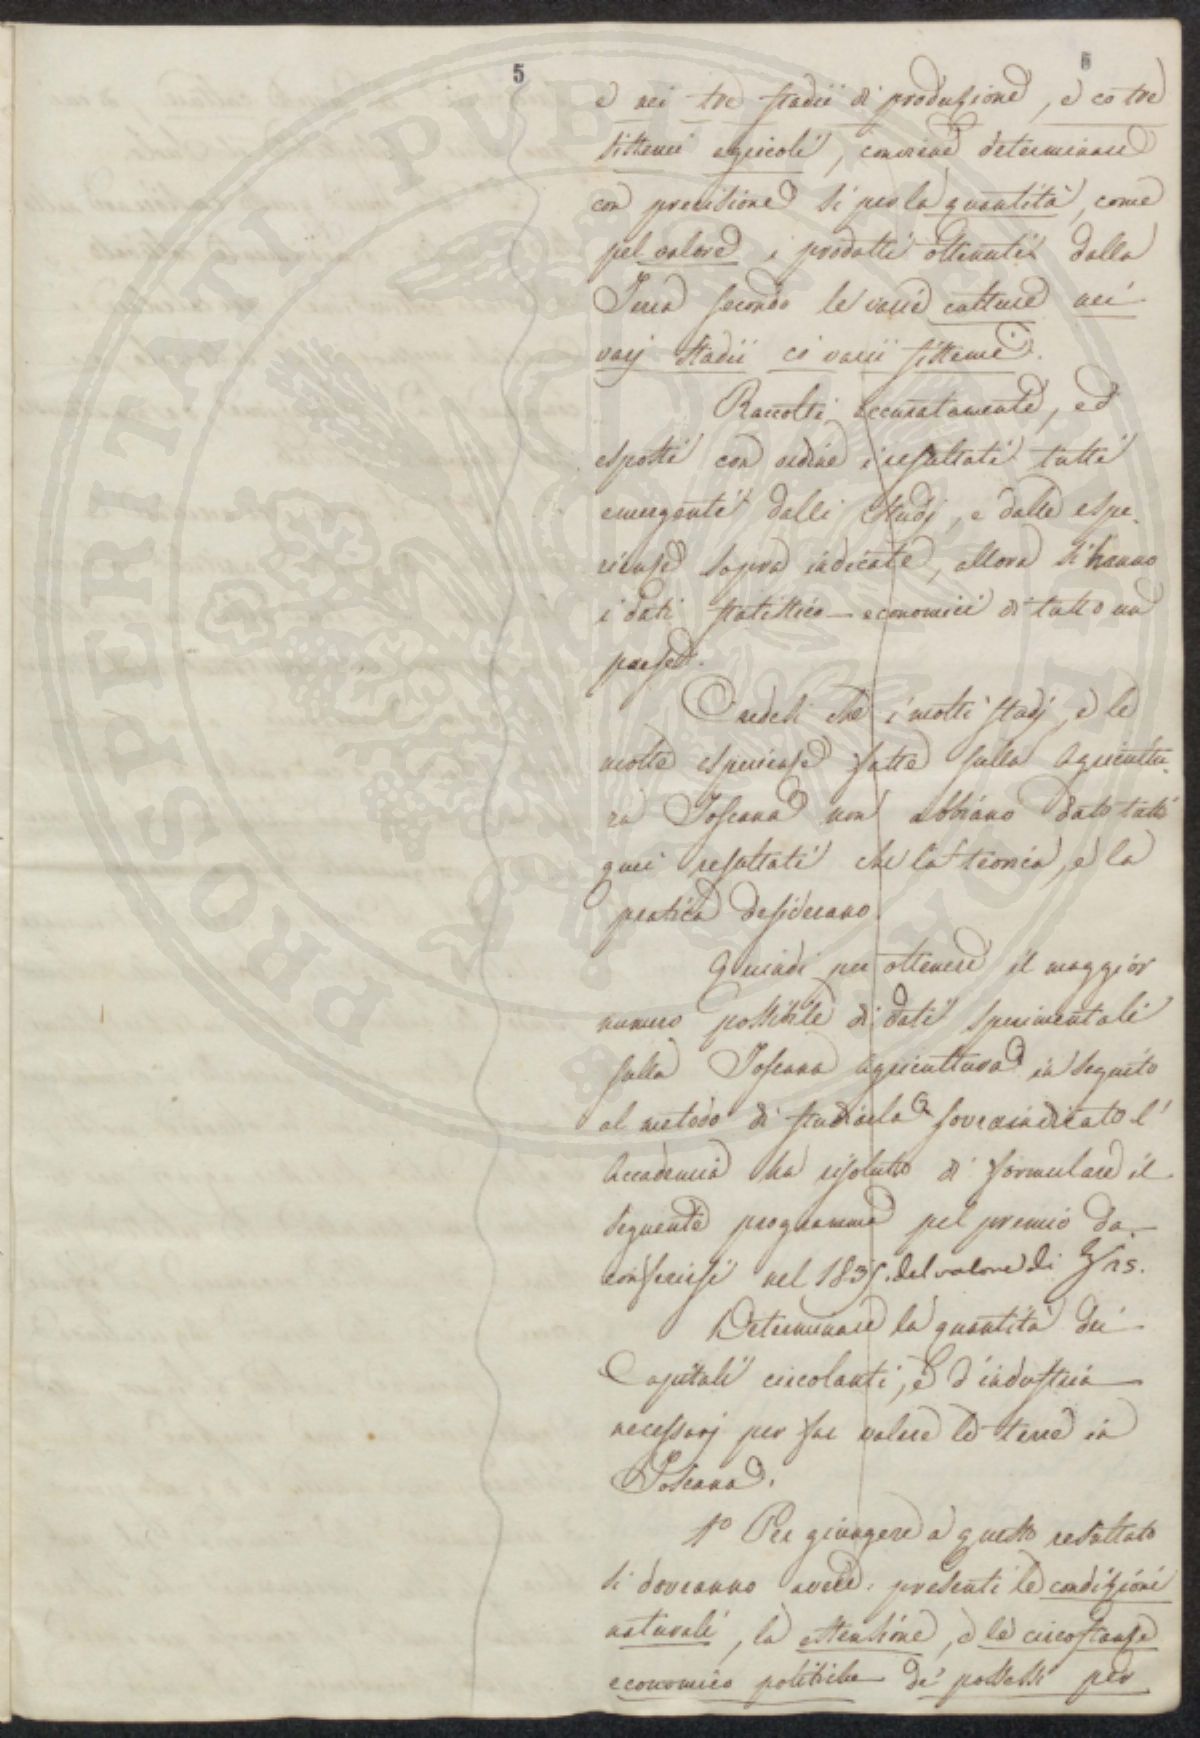 5
5
e nei tre stadii di produzione, e co tre
sistemi agricoli, conviene determinare
con precisione si per la quantità, come
pel valore i prodotti ottenuti dalla
Terra secondo le varie culture nei
varj stadii co' varii sistemi.
Raccolti accuratamente, ed
esposti con ordine i resultati tutti
emergenti dalli studj, e dalle espe-
rienze sopra indicate, allora si hanno
i dati statistico-economici di tutto un
paese.
Credesi che i molti studj, e le
molte esperienze fatte sulla Agricultu-
ra Toscana non abbiano dato tutti
quei resultati che la teoria, e la
pratica desiderano.
Quindi per ottenere il maggior
numero possibile di dati sperimentali
sulla Toscana Agricultura in seguito
al metodo di studiarla sovraindicato l'
Accademia ha risoluto di formulare il
seguente programma pel premio da
conferirsi nel 183 . del valore di
Determinare la quantità dei
Capitali circolanti, e d'industria
necessarj per far valere le terre in
Toscana.
1º Per giungere a questo resultato
si dovranno avere presenti le condizioni
naturali, la estensione, e le circostanze
economico politiche de' possessi per
PROSPERITATI PUBLICAE